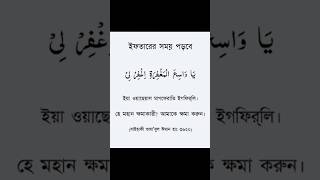 ইফতারের সময় পড়বে
يَا وَاسِعَ الْمَغْفِرَةِ اِغْفِرْ لِىْ
ইয়া ওয়াছেয়াল মাগফেরাতি ইগফিরলি।
হে মহান ক্ষমাকারী? আমাকে ক্ষমা করুন।